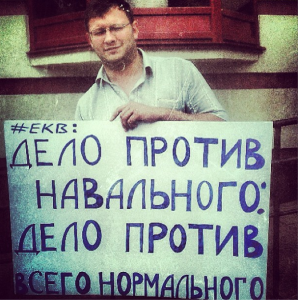 #ЕКВ:
ДЕЛО ПРОТИВ
НАВАЛЬНОГО:
ДЕЛО ПРОТИВ
ВСЕГО НОРМАЛЬНОГО